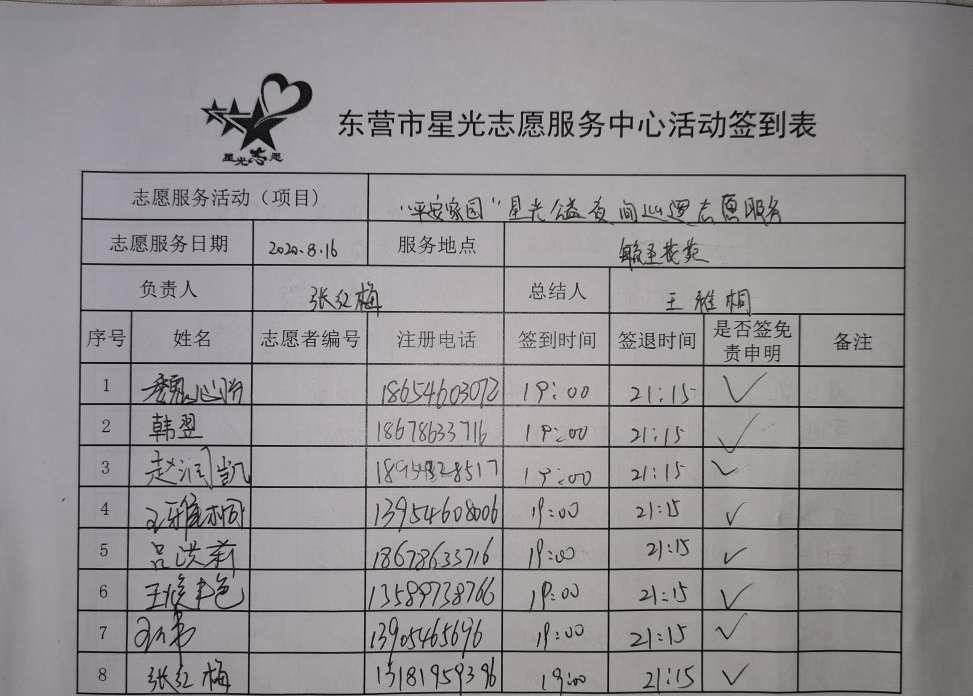 星光志愿
东营市星光志愿服务中心活动签到表
志愿服务活动（项目） “平安家园”星光公益夜间巡逻志愿服务
志愿服务日期 2020.8.16 服务地点
负责人 张红梅 总结人 王雅桐
序号 姓名 志愿者编号 注册电话 签到时间 签退时间 是否签免责申明 备注
1 魏 18654603072 19:00 21:15 ✓
2 韩翌 18678633716 19:00 21:15 ✓
3 赵润凯 18954828517 19:00 21:15 ✓
4 王雅桐 13954608006 19:00 21:15 ✓
5 吕洪莉 18678633716 19:00 21:15 ✓
6 王 13589738766 19:00 21:15 ✓
7 13905465696 19:00 21:15 ✓
8 张红梅 13181959396 19:00 21:15 ✓